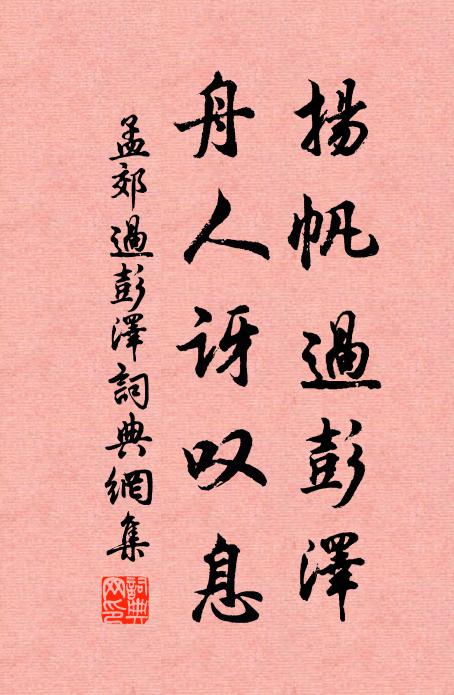 揚帆過彭澤
舟人訝叹息
孟郊過彭澤詞典網集
詞典網印